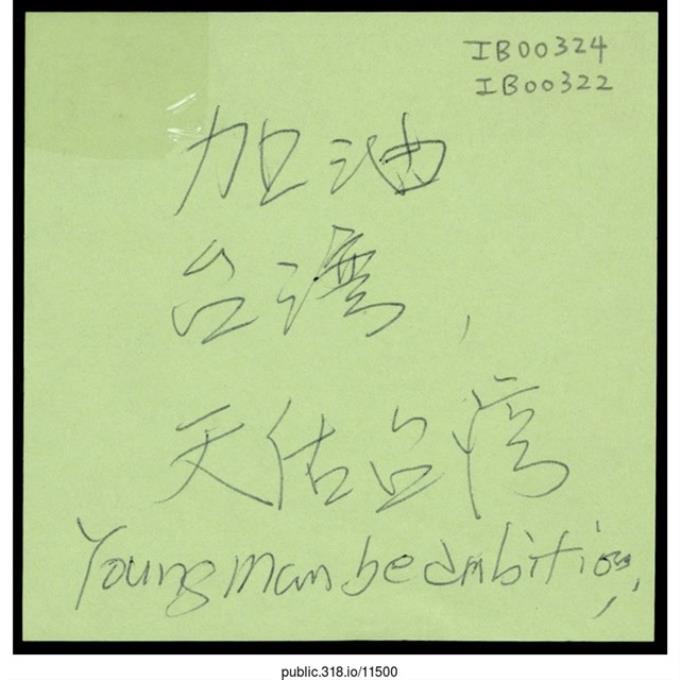 IB00324
IB00322
加油
台湾,
天佑台湾
Young man be ambitious,
public.318.io/11500